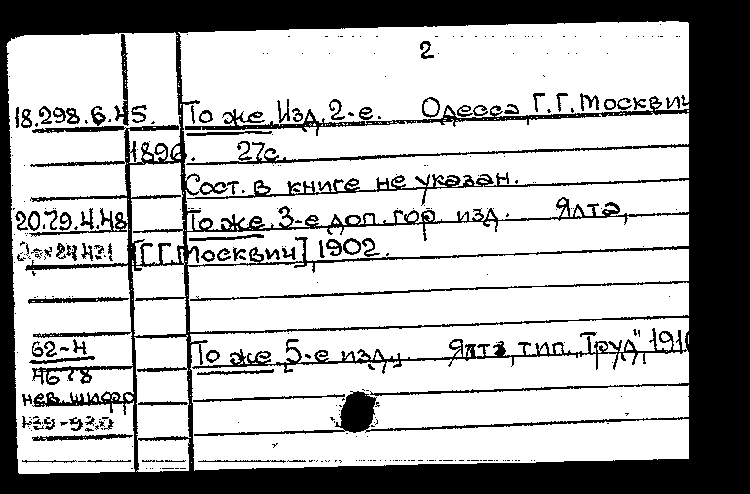 2
18.298.6.45. То же. Изд. 2-е. Одесса, Г.Г. Москвич
1896. 27с.
Сост. в книге не указан.
20.79.4.48 То же. 3-е доп. гор. изд. Ялта,
[Г.Г. Москвич], 1902.
62-4 То же. 5-е изд. Ялта, тип. „Труд", 191
4678
нев. шифр
439-930